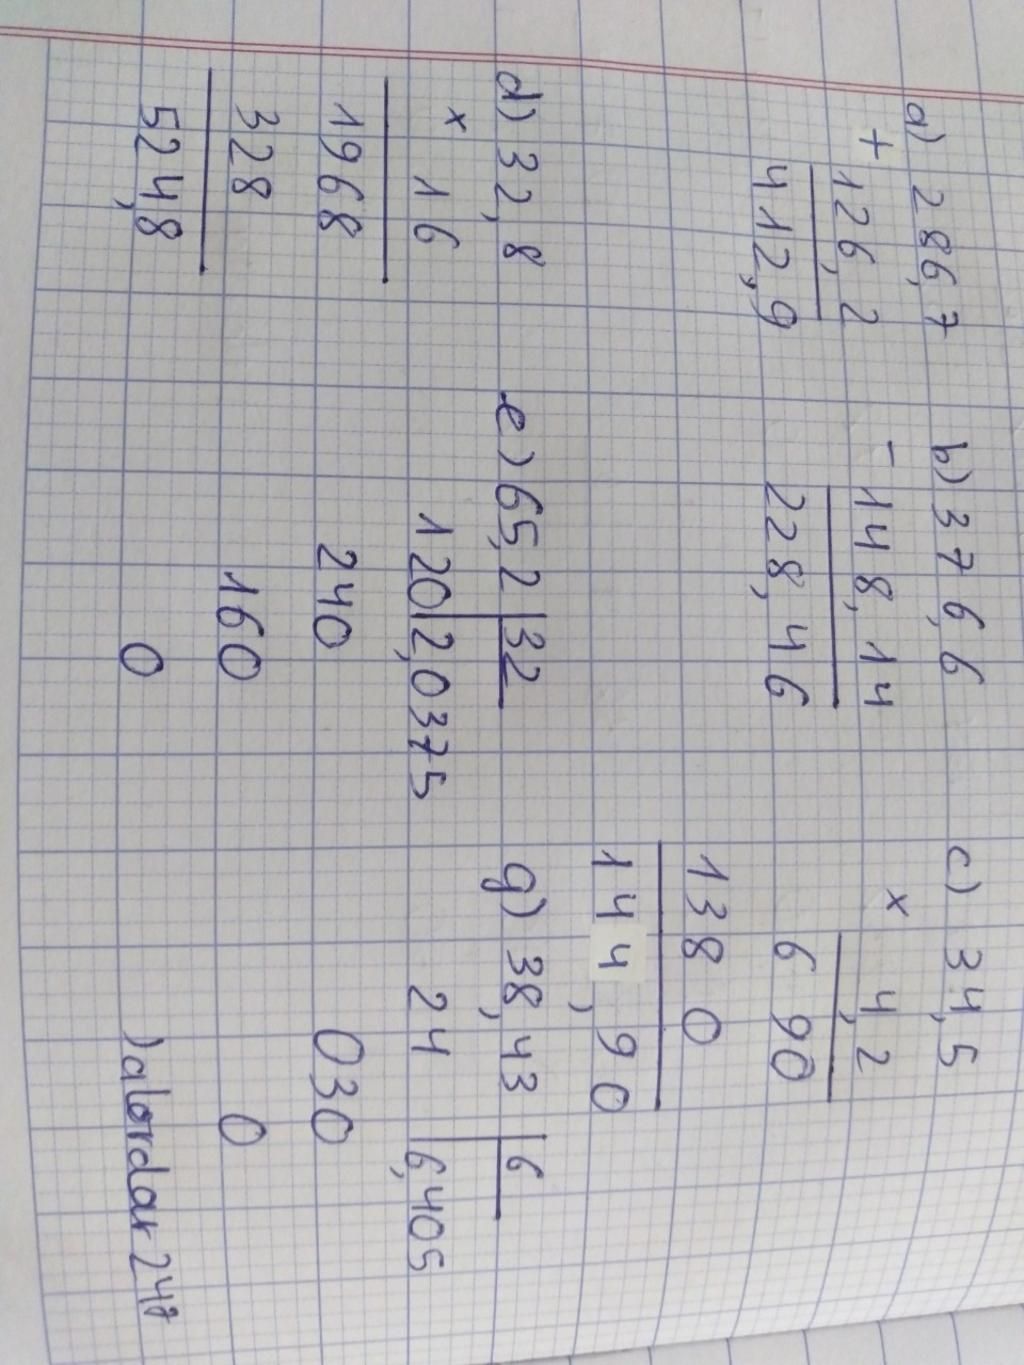 a) 286,7
+ 126,2
412,9
b) 376,6
- 148,14
228,46
c) 34,5
x 4,2
6 90
138 0
144,90
d) 32,8
x 16
1968
328
524,8
e) 65,2 | 32
120 | 2,0375
240
160
0
g) 38,43 | 6
24 | 6,405
030
0
)alordar247